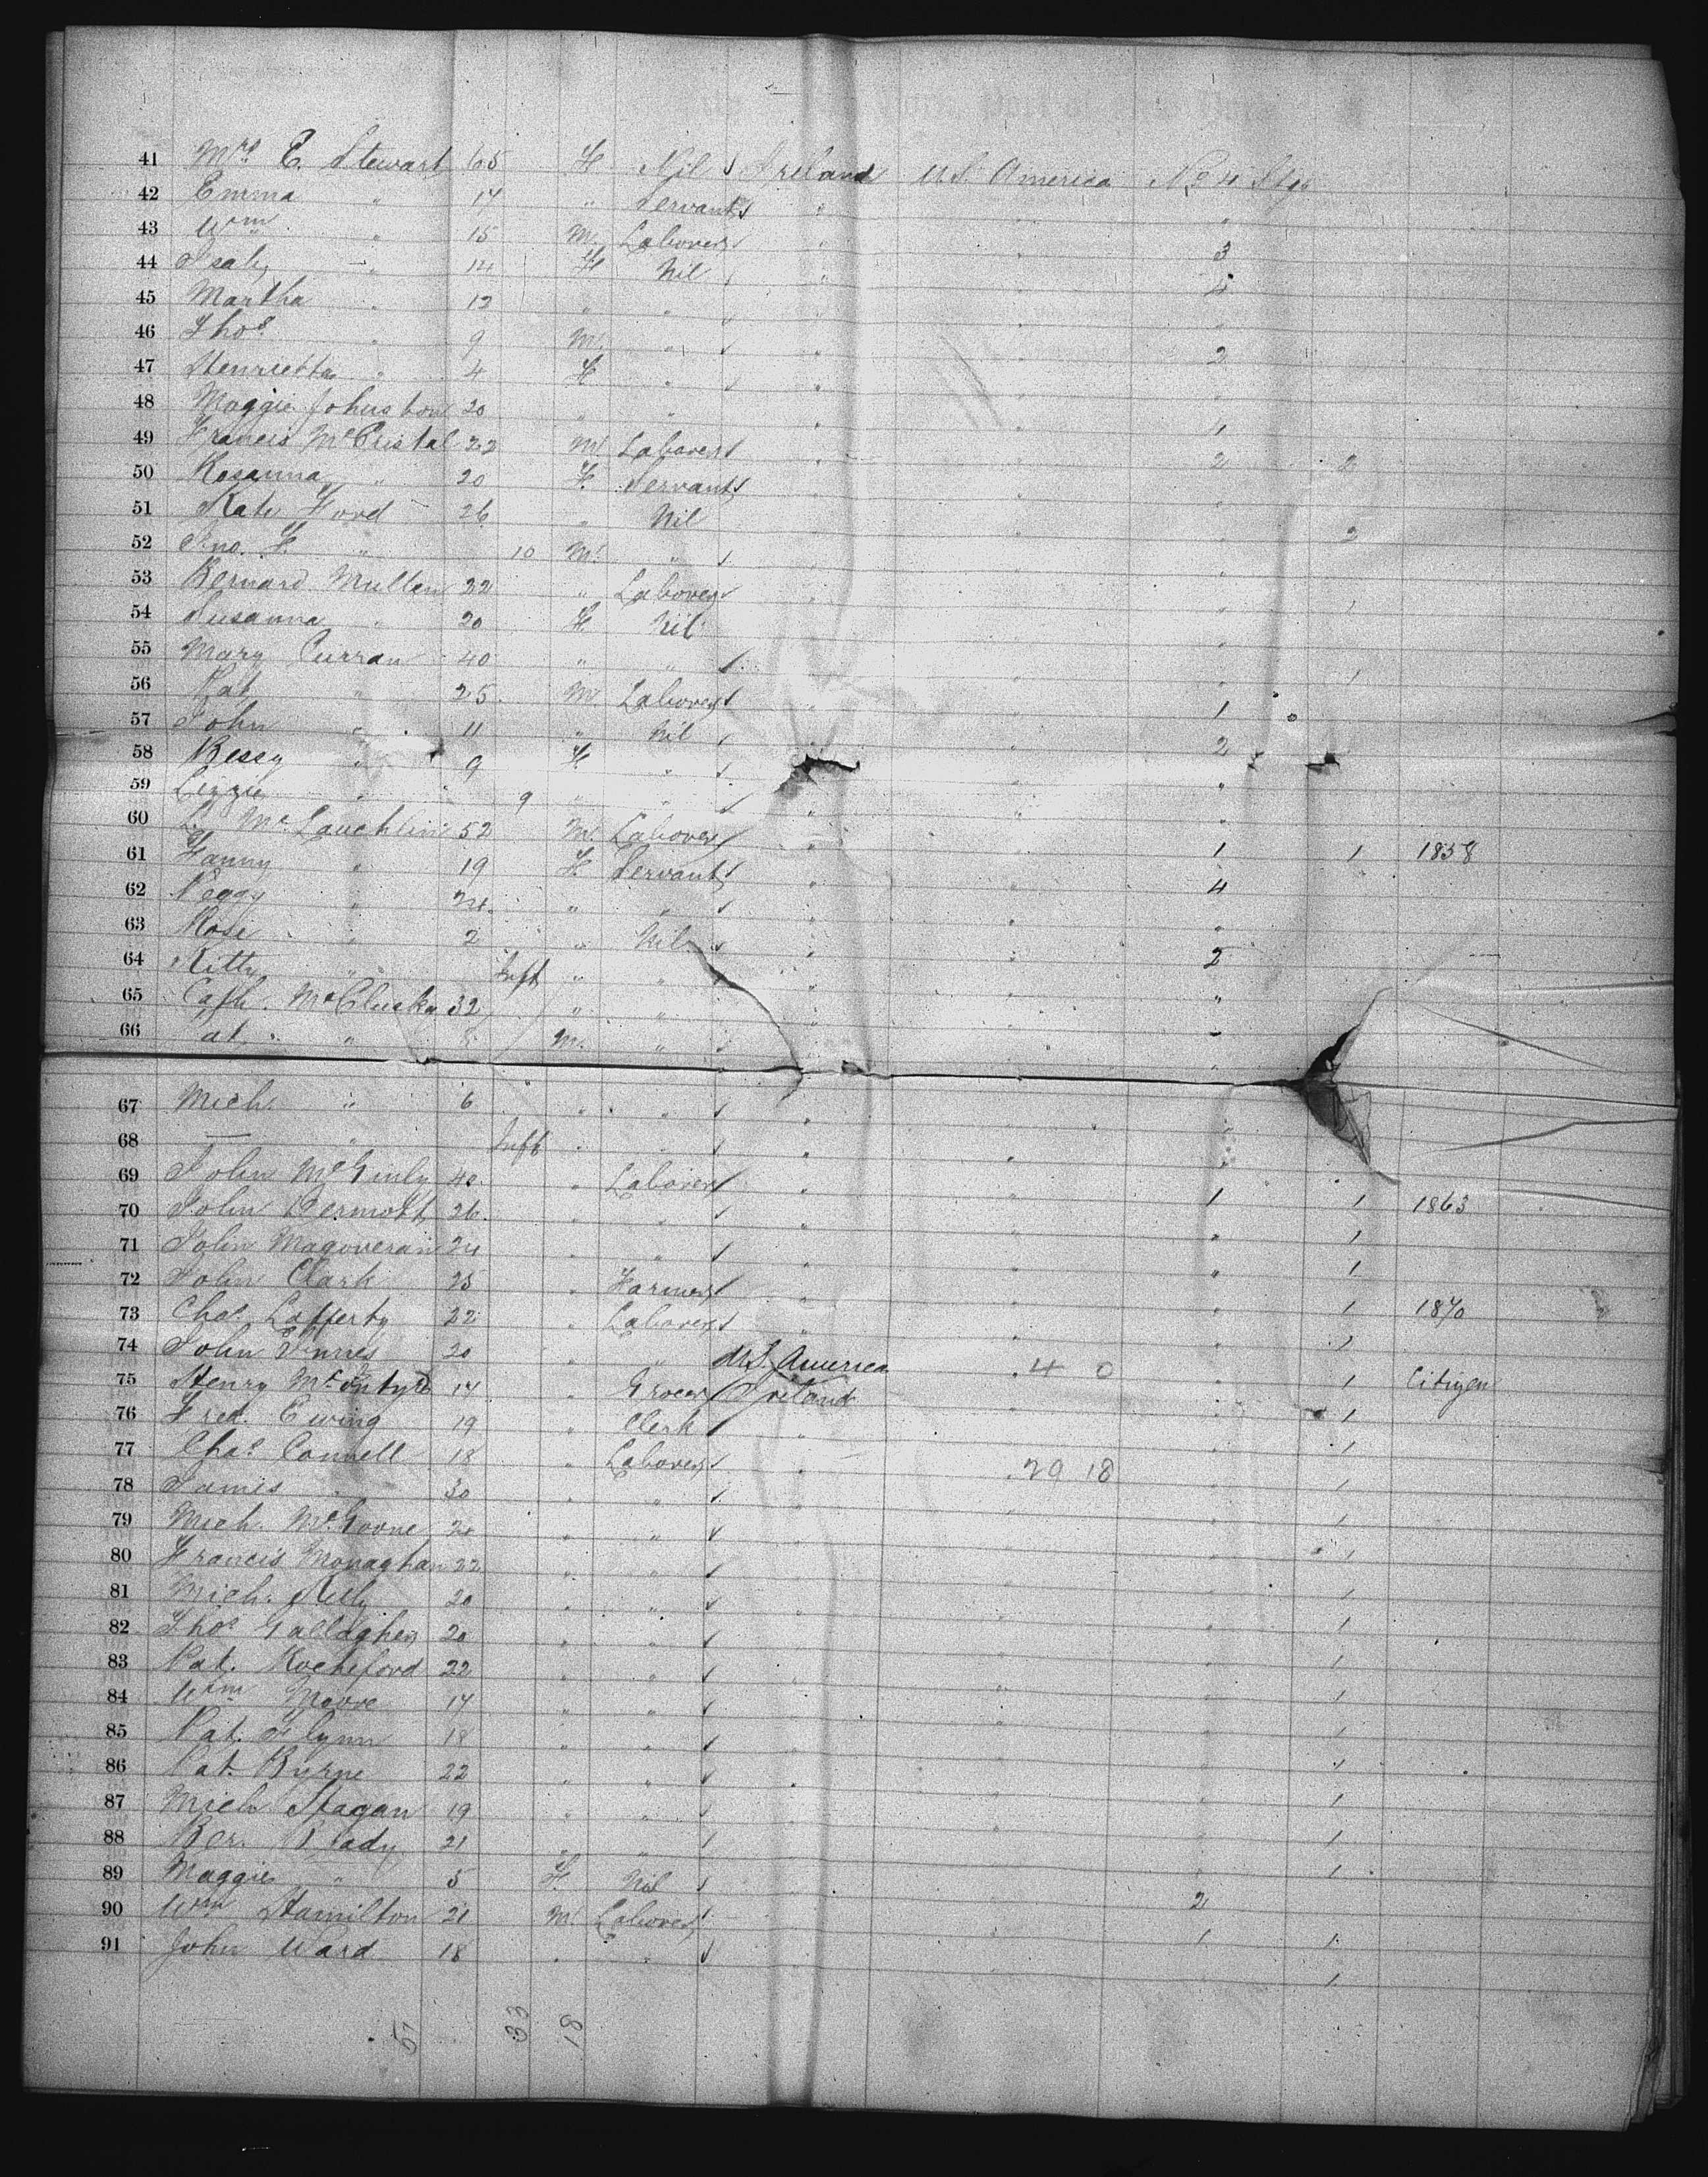 41 Mrs. E. Stewart 65 F Nil Ireland U.S. America No 4 Stge
42 Emma " 17 " Servant " "
43 Wm " 15 M. Laborer " 3
44 Isab. " 14 F Nil " 4
45 Martha " 12 " " " "
46 Thos " 9 M. " " 2
47 Henrietta " 4 F " " "
48 Maggie Johnston 20 " " " 4
49 Francis McCristal 22 M Laborer " 2 2
50 Rosanna " 20 F. Servant " "
51 Kate Ford 26 " Nil " 2
52 Jno. F. " 10 M. " " "
53 Bernard Mullen 22 " Laborer " " 1
54 Susanna " 20 F Nil " "
55 Mary Curran 40 " " " " 1
56 Pat. " 25 M. Laborer " 1
57 John " 11 " Nil " 2
58 Bessy " 9 F " " "
59 Lizzie " 9 " " " "
60 McLauchlin 52 M. Laborer " 1 1 1858
61 Fanny " 19 F. Servant " 4
62 Peggy " 24 " " " "
63 Rose " 2 " Nil " 2
64 Kitty " Inft " " " "
65 Cath. McCluska 32 " " " -
66 Pat. " M. " " "
67 Mich. " 6 " " " "
68 — " Inft " " " "
69 John McGinly 40 " Laborer " 1 1 1863
70 John Dermott 26 " " " " 1
71 John Magoveran 24 " " " " 1
72 John Clark 25 " Farmer " " 1 1870
73 Chas. Lafferty 22 " Laborer " " 1
74 John 20 " " U.S. America 4 0 " 1 Citizen
75 Henry McIntyre 17 " Grocer Ireland " 1
76 Fred. Ewing 19 " Clerk " " 1
77 Chas. Connell 18 " Laborer " 29 18 " 1
78 James " 30 " " " " 1
79 Mich. 24 " " " " 1
80 Francis Monaghan 22 " " " " 1
81 Mich. Kelly 20 " " " " 1
82 Thos Gallagher 20 " " " " 1
83 Pat. Rocheford 22 " " " " 1
84 Wm Moore 17 " " " " 1
85 Pat. Flynn 18 " " " " 1
86 Pat. Byrne 22 " " " " 1
87 Mich 19 " " " " 1
88 Ber. 21 " " " " 1
89 Maggie " 5 F. Nil " 2
90 Wm Hamilton 21 M. Laborer " 1 1
91 John Ward 18 " " " " 1
51 33 18